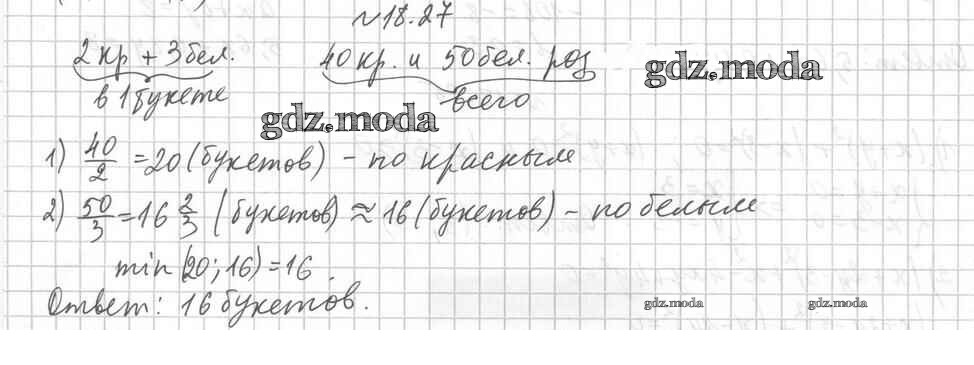 №18.27
2 кр + 3 бел. 40 кр. и 50 бел. роз
gdz.moda
в 1 букете всего
gdz.moda
1) 40/2 = 20 (букетов) – по красным
2) 50/3 = 16 2/3 (букетов) ≈ 16 (букетов) – по белым
min (20; 16) = 16.
Ответ: 16 букетов.
gdz.moda gdz.moda